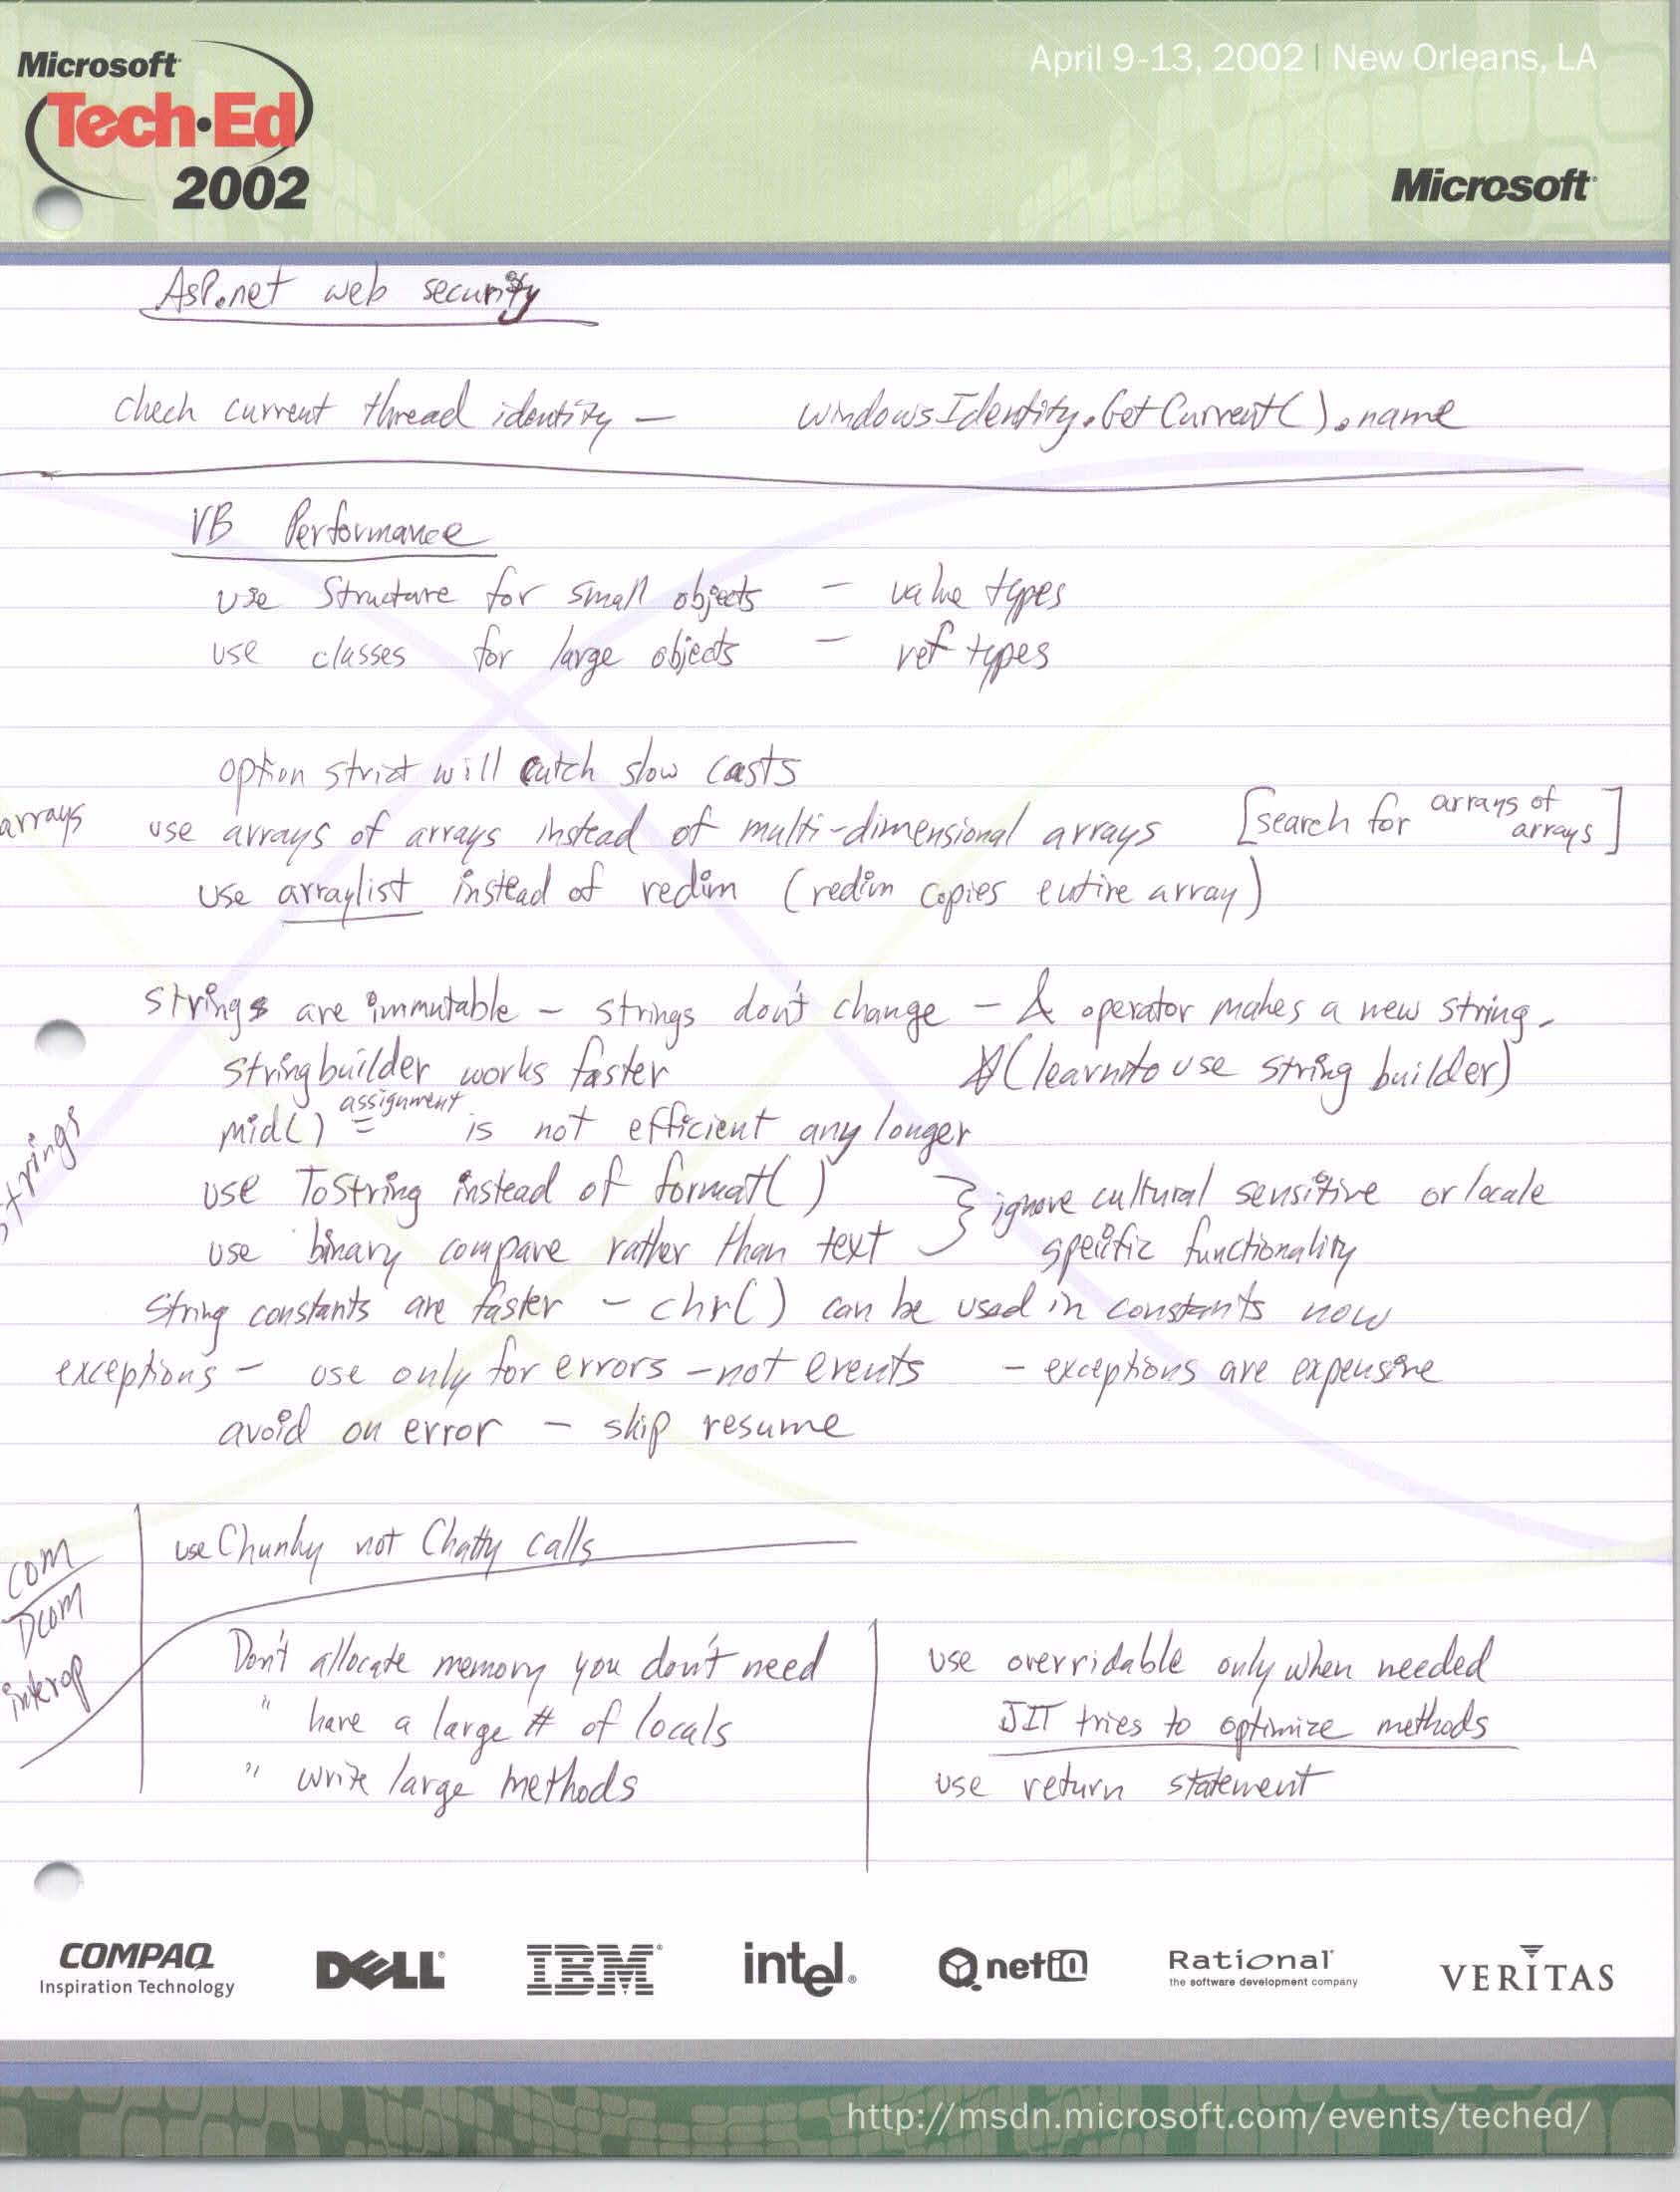 Microsoft
Tech·Ed
2002
April 9-13, 2002 | New Orleans, LA
Microsoft
ASP.net web security
check current thread identity – windowsIdentity.GetCurrent().name
VB Performance
use Structure for small objects – value types
use classes for large objects – ref types
option strict will catch slow casts
arrays use arrays of arrays instead of multi-dimensional arrays [search for arrays of arrays]
use arraylist instead of redim (redim copies entire array)
strings are immutable – strings don't change – & operator makes a new string.
stringbuilder works faster (learn to use string builder)
mid() = assignment is not efficient any longer
strings
use ToString instead of format() } ignore cultural sensitive or locale
use binary compare rather than text specific functionality
string constants are faster – chr() can be used in constants now
exceptions – use only for errors – not events – exceptions are expensive
avoid on error – skip resume
com
Dcom
interop
use Chunky not Chatty calls
Don't allocate memory you don't need
" have a large # of locals
" write large methods
use overridable only when needed
JIT tries to optimize methods
use return statement
COMPAQ
Inspiration Technology
DELL
IBM
intel
netiQ
Rational
the software development company
VERITAS
http://msdn.microsoft.com/events/teched/